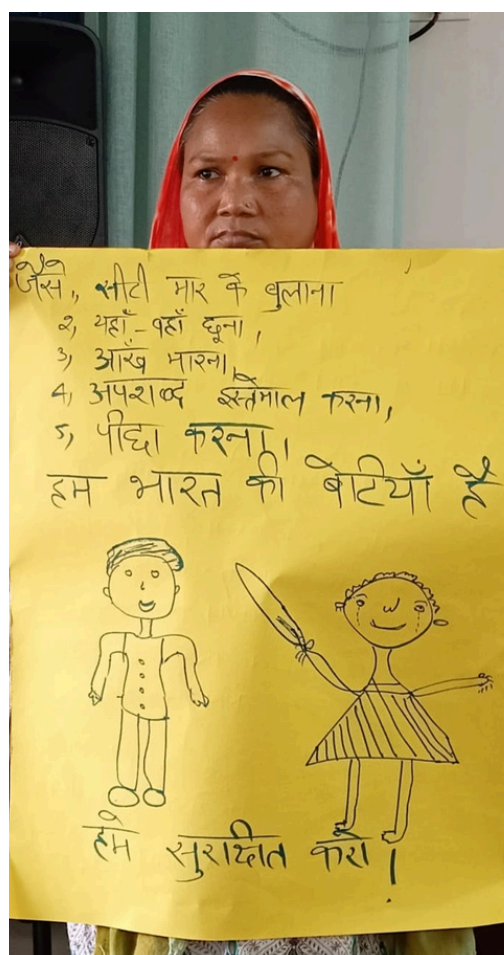 जैसे, सीटी मार के बुलाना
2, यहाँ-वहाँ छूना,
3, आँख मारना,
4, अपशब्द इस्तेमाल करना,
5, पीछा करना।
हम भारत की बेटियाँ है
हमे सुरक्षित करो!